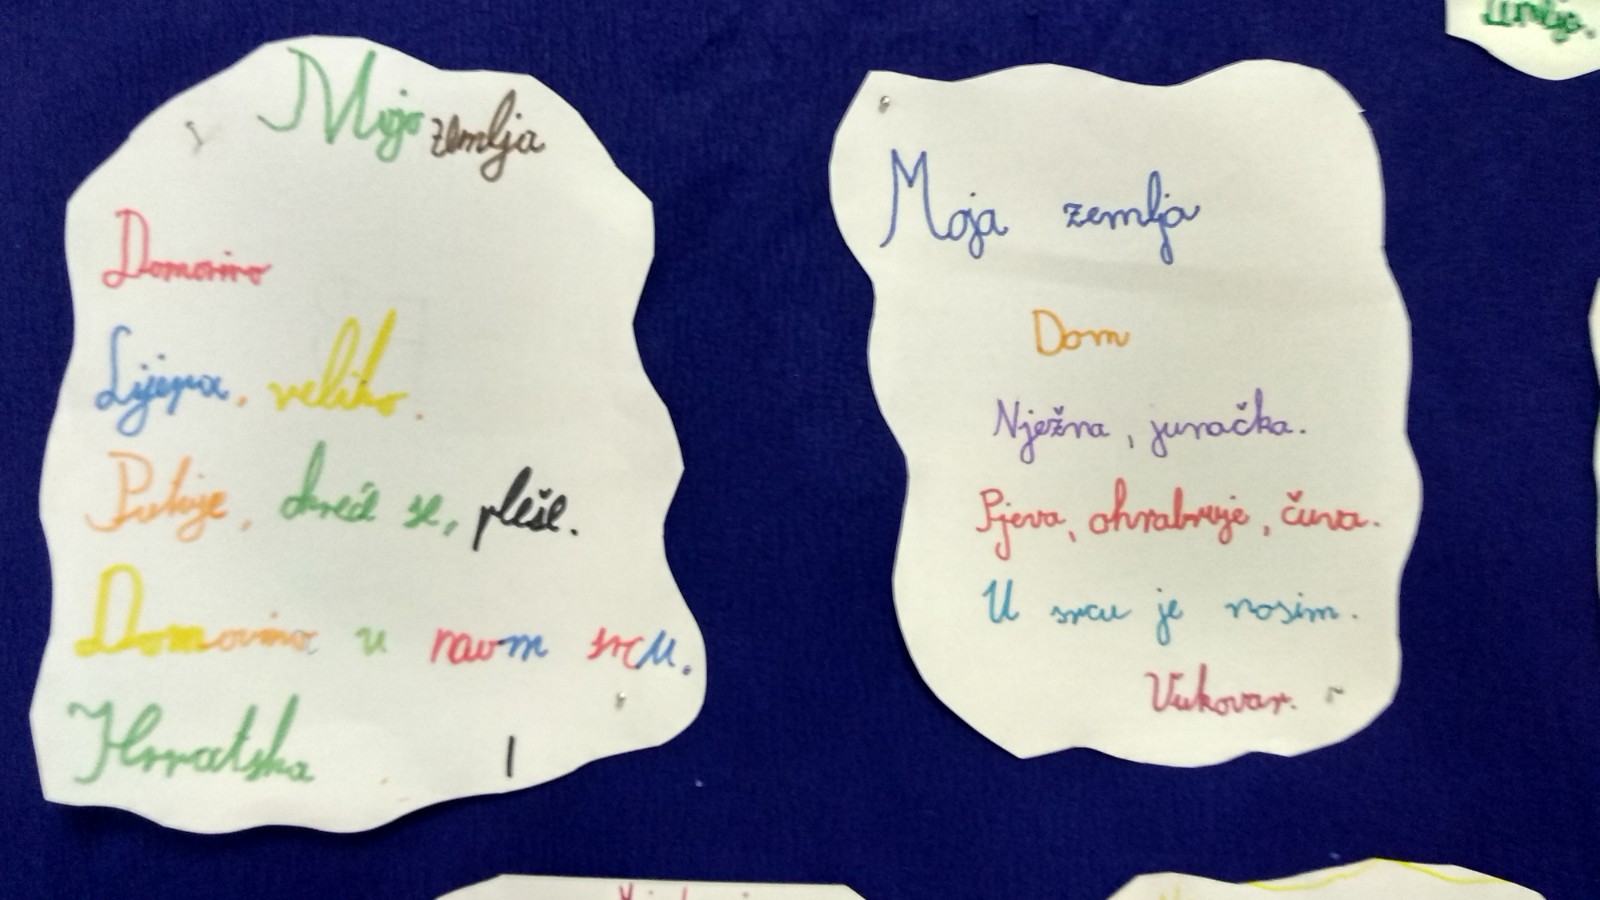 Moja zemlja
Domovina
Lijepa, velika.
Putuje, okreće se, pleše.
Domovina u navm srcu.
Hrvatska
Moja zemlja
Dom
Nježna, junačka.
Pjeva, ohrabruje, čuva.
U srcu je nosim.
Vukovar.